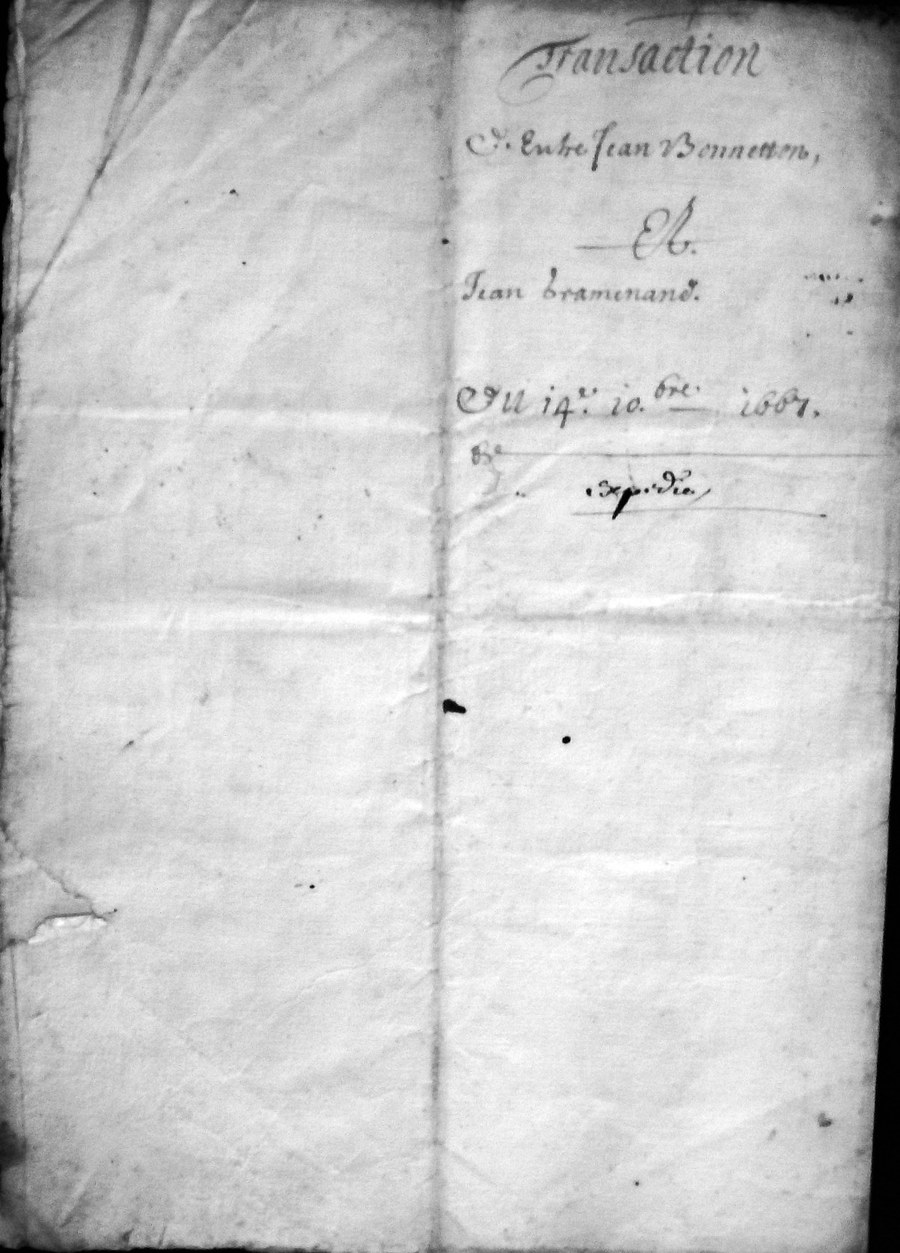 Transaction
D'Entre Jean Bonnetton,
Et.
Jean bramenand.
Du 14.e 10.bre 1667.
expediée